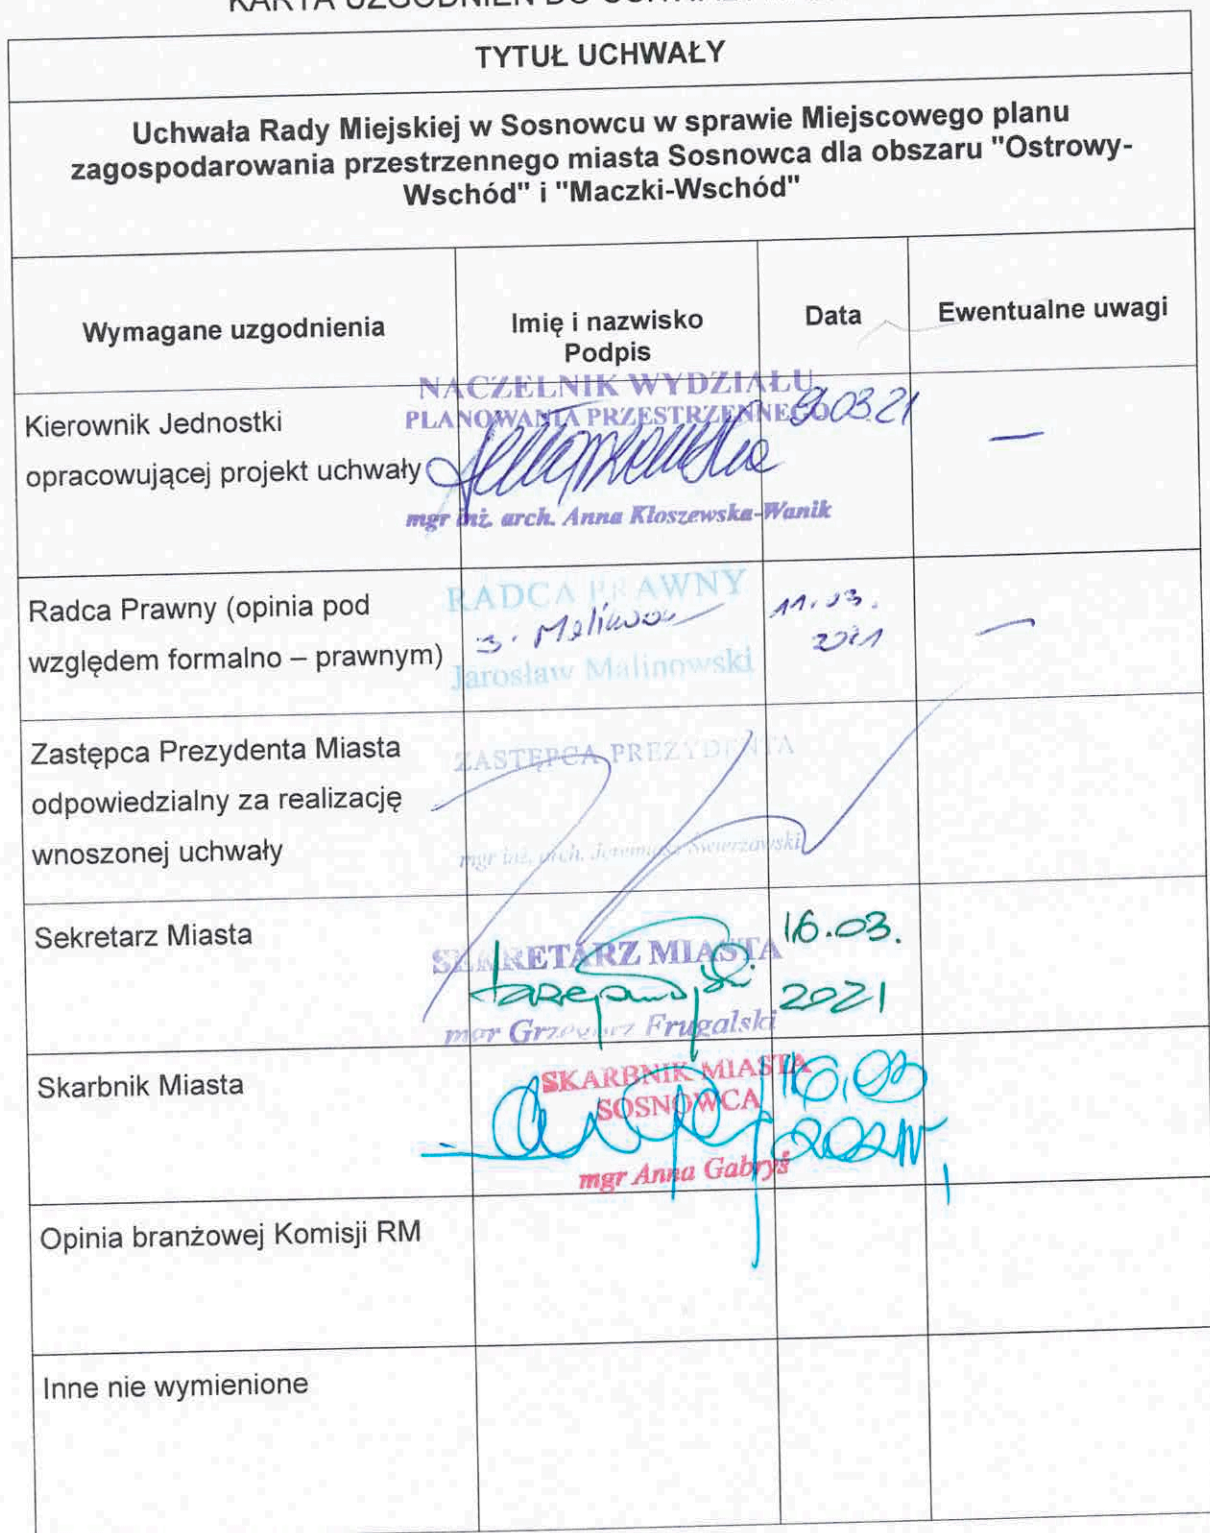 TYTUŁ UCHWAŁY
Uchwała Rady Miejskiej w Sosnowcu w sprawie Miejscowego planu
zagospodarowania przestrzennego miasta Sosnowca dla obszaru "Ostrowy-
Wschód" i "Maczki-Wschód"
Wymagane uzgodnienia
Imię i nazwisko
Podpis
Data
Ewentualne uwagi
Kierownik Jednostki
opracowującej projekt uchwały
NACZELNIK WYDZIAŁU
PLANOWANIA PRZESTRZENNEGO
mgr inż. arch. Anna Kłoszewska-Wanik
9.03.21
—
Radca Prawny (opinia pod
względem formalno – prawnym)
RADCA PRAWNY
Jarosław Malinowski
11.03.
2021
—
Zastępca Prezydenta Miasta
odpowiedzialny za realizację
wnoszonej uchwały
ZASTĘPCA PREZYDENTA
mgr inż. arch. Jeremiasz Świerzawski
Sekretarz Miasta
SEKRETARZ MIASTA
mgr Grzegorz Frugalski
16.03.
2021
Skarbnik Miasta
SKARBNIK MIASTA
SOSNOWCA
mgr Anna Gabryś
16.03
2021r.
Opinia branżowej Komisji RM
Inne nie wymienione